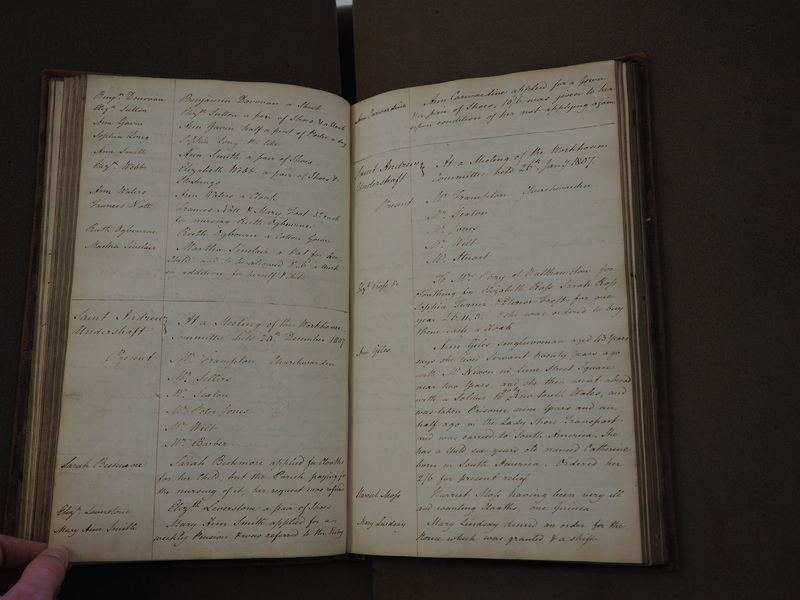 Benjn. Donovan Benjamin Donovan a Shirt
Elizth. Sutton Elizth. Sutton a pair of Shoes & a Cloak
Ann Gavin Ann Gavin half a pint of Porter a day
Sophia Long Sophia Long the like
Ann Smith Ann Smith a pair of Shoes
Elizth. Webb Elizabeth Webb a pair of Shoes &
Stockings
Ann Waters Ann Waters a Cloak
Frances Nott Frances Nott & Mary each
for nursing Ruth Ogbourne
Ruth Ogbourne Ruth Ogbourn a Cotton Gown
Martha Sinclair Martha Sinclair a Hat for her
Child and to be allowed a Week
in addition for herself & Child
Saint Andrew
Undershaft
At a Meeting of the Workhouse
Committee held 23rd December 1807
Present Mr. Frampton Churchwarden
Mr. Sellers
Mr. Seaton
Mr. Peter Jones
Mr. Wilt
Mr. Barber
Sarah Beehmore Sarah Beehmore applied for Cloaths
for her Child but the Parish paying for
the nursing of it, her request was refused
Elizth. Leverstone Elizth. Leverstone a pair of Shoes
Mary Ann Smith Mary Ann Smith applied for a
weekly Pension & was referred to the Vestry
Ann Carwardine Ann Carwardine applied for a Gown
& a pair of Shoes, 10/6 was given to her
upon condition of her not applying again
Saint Andrew
Undershaft
At a Meeting of the Workhouse
Committee held 26th Jany. 1807
Present Mr. Frampton Churchwarden
Mr. Seaton
Mr. Jones
Mr. Wilt
Mr. Stuart
Elizth. Ross &c To Mrs. Pory of Walthamstow for
Clothing for Elizabeth Ross Sarah Ross
Sophia Turner & Elenor for one
year 26.11.3. & she was ordered to buy
them each a Cloak
Ann Giles Ann Giles singlewoman aged 43 Years
says she lived Servant twenty Years ago
with Mr. Nixon in Lime Street Square
near two Years, and she then went abroad
with a Soldier to New South Wales, and
was taken Prisoner nine Years and an
half ago in the Lady Shore Transport
and was carried to South America. She
has a Child six years old named Catherine
born in South America. Ordered her
2/6 for present relief
Harriet Slops Harriet Slops having been very ill
and wanting Cloaths, one Guinea
Mary Lindsay Mary Lindsay desired an order for the
House which was granted & a shift